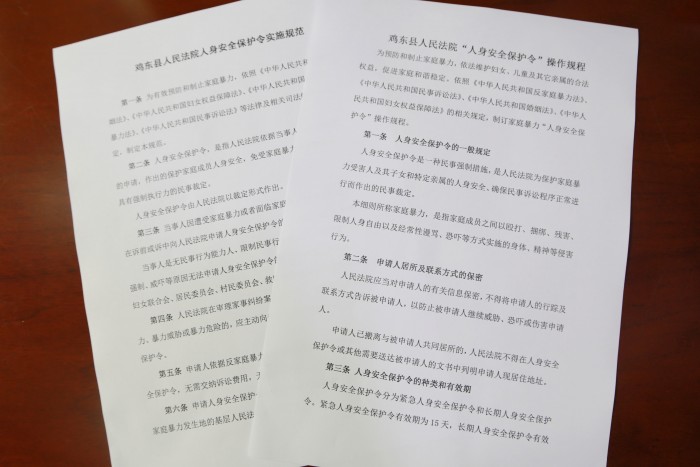 鸡东县人民法院人身安全保护令实施规范
第一条 为有效预防和制止家庭暴力，依照《中华人民共和
姻法》、《中华人民共和国妇女权益保障法》、《中华人民共和国
暴力法》、《中华人民共和国民事诉讼法》等法律及相关司法
定，制定本规范。
第二条 人身安全保护令，是指人民法院依据当事人
的申请，作出的保护家庭成员人身安全，免受家庭暴
具有强制执行力的民事裁定。
人身安全保护令由人民法院以裁定形式作出。
第三条 当事人因遭受家庭暴力或者面临家庭
在诉前或诉中向人民法院申请人身安全保护令的
当事人是无民事行为能力人、限制民事行
强制、威吓等原因无法申请人身安全保护令
妇女联合会、居民委员会、村民委员会、救
第四条 人民法院在审理家事纠纷案
力、暴力威胁或暴力危险的，应主动向
保护令。
第五条 申请人依据反家庭暴
全保护令，无需交纳诉讼费用，
第六条 申请人身安全保护
家庭暴力发生地的基层人民法
鸡东县人民法院“人身安全保护令”操作规程
为预防和制止家庭暴力，依法维护妇女、儿童及其它亲属的合法
权益，促进家庭和谐稳定，依照《中华人民共和国反家庭暴力法》、
《中华人民共和国民事诉讼法》、《中华人民共和国婚姻法》、《中华人
民共和国妇女权益保障法》的相关规定，制订家庭暴力“人身安全保
护令”操作规程。
第一条 人身安全保护令的一般规定
人身安全保护令是一种民事强制措施，是人民法院为保护家庭暴
力受害人及其子女和特定亲属的人身安全、确保民事诉讼程序正常进
行而作出的民事裁定。
本细则所称家庭暴力，是指家庭成员之间以殴打、捆绑、残害、
限制人身自由以及经常性谩骂、恐吓等方式实施的身体、精神等侵害
行为。
第二条 申请人居所及联系方式的保密
人民法院应当对申请人的有关信息保密，不得将申请人的行踪及
联系方式告诉被申请人，以防止被申请人继续威胁、恐吓或伤害申请
人。
申请人已搬离与被申请人共同居所的，人民法院不得在人身安全
保护令或其他需要送达被申请人的文书中列明申请人现居住地址。
第三条 人身安全保护令的种类和有效期
人身安全保护令分为紧急人身安全保护令和长期人身安全保护
令。紧急人身安全保护令有效期为 15 天，长期人身安全保护令有效